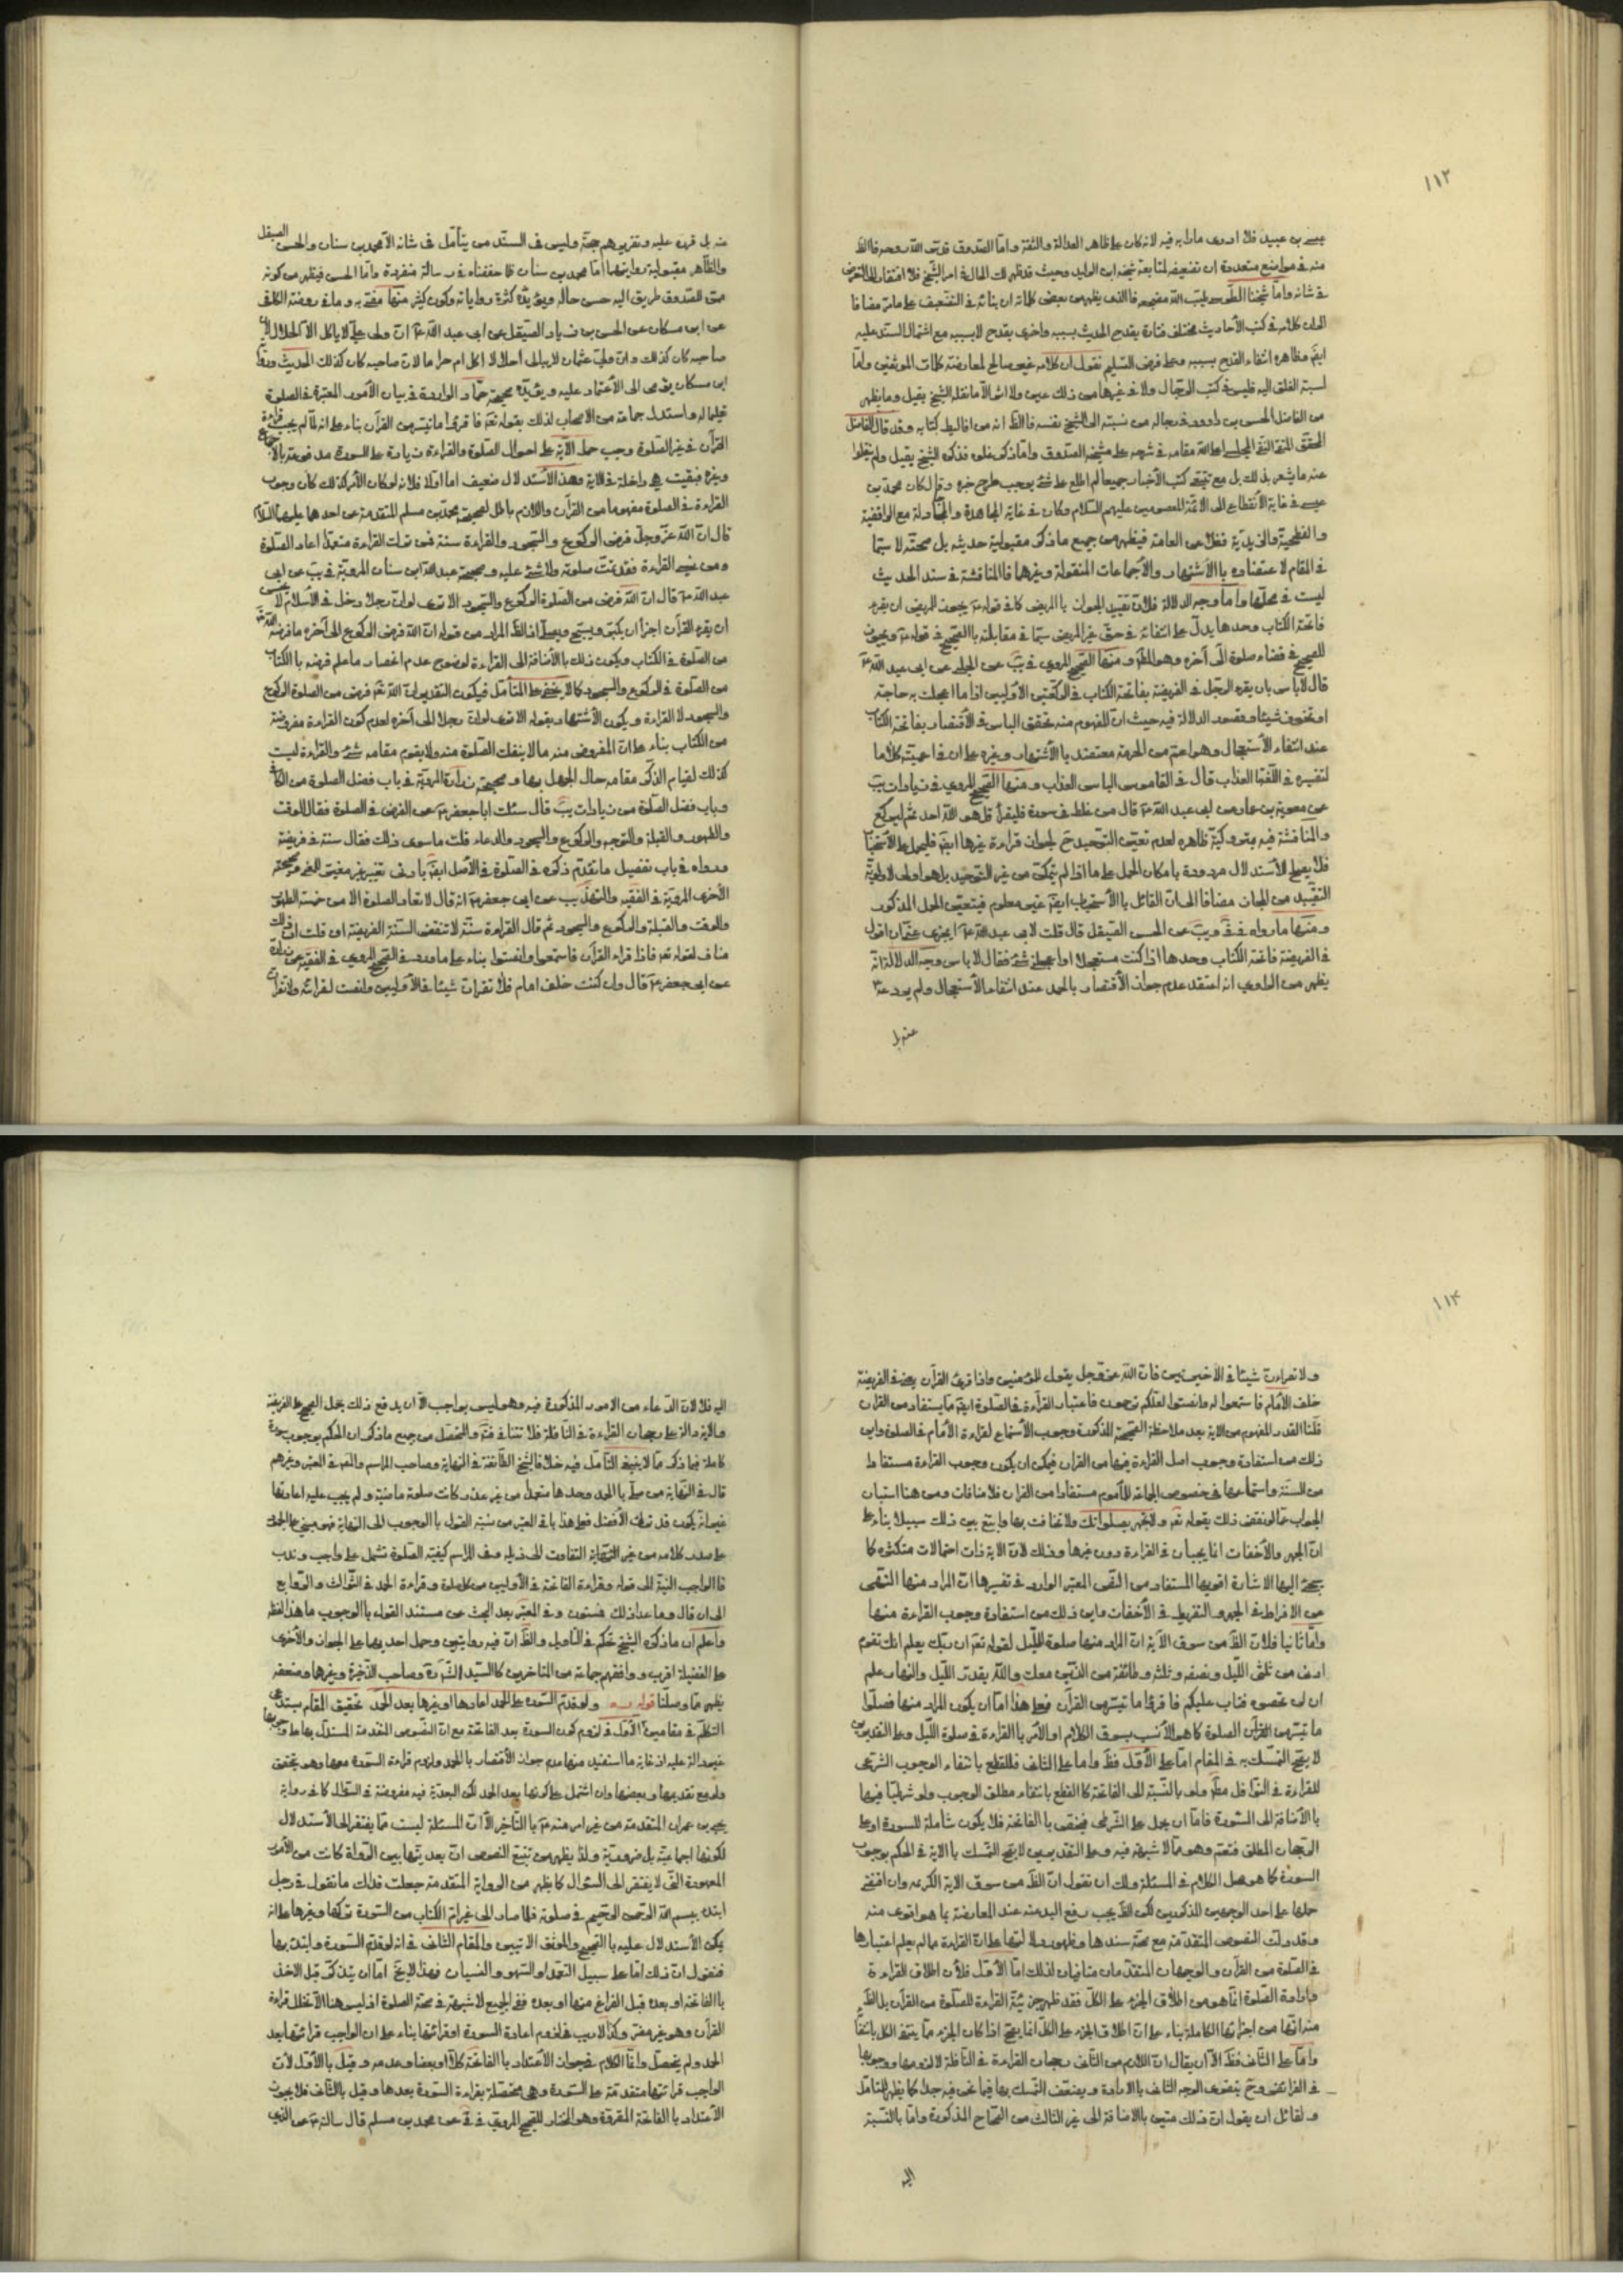 ١١٣
عيسى بن عبيد فلا ادرى ما رابه فيه لانه كان على ظاهر العدالة والثقة واما الصدوق قدس الله روحه فالظ
منه في مواضع متعددة ان تضعيفه لمتابعة شيخه ابن الوليد وحيث قد ظهر لك الحال في امر الشيخ فلا افتقار الى التعرض
في شانه واما شيخنا الطوسي طيب الله مضجعه فالذي يظهر من بعض كلماته ان بنائه في التضعيف على ما مر مضافا
الى ان كلامه في كتب الأحاديث مختلف فتارة يقدح الحديث بسببه واخرى يقدح لا بسببه مع اشتمال السند عليه
ايضا وظاهره انتفاء القدح بسببه وعلى فرض التسليم نقول ان كلامه غير صالح لمعارضة كلمات الموثقين واما
نسبة الغلو اليه فليس في كتب الرجال ولا في غيرها من ذلك عين ولا اثر الا ما نقله الشيخ بقيل وما يظهر
من الفاضل الحسن بن داوود في رجاله من نسبته الى الشيخ نفسه فالظ انه من اغاليط كتابه وقد قال الفاضل
المحقق التقى النقى المجلسي اعلى الله مقامه في شرحه على مشيخة الصدوق واما ذكر غلوه فذكره الشيخ بقيل ولم ينقلوا
عنه ما يشعر بذلك بل مع تتبع كتب الأخبار جميعا لم اطلع على شئ يوجب طرح خبره وقال كان محمد بن
عيسى في غاية الأنقطاع الى الائمة المعصومين عليهم السلام وكان في غاية المجاهدة والمجادلة مع الواقفية
والفطحية والزيدية فضلا عن العامة فيظهر من جميع ما ذكر مقبولية حديثه بل صحته لا سيما
في المقام لاعتضاده بالأشتهار والأجماعات المنقولة وغيرهما فالمناقشة في سند الحديث
ليست في محلها واما وجه الدلالة فلان تقييد الجواز بالمريض كما في قوله ع يجوز للمريض ان يقرء
فاتحة الكتاب وحدها يدل على انتفائه في حق غير المريض سيما في مقابلته بالصحيح في قوله ع ويجوز
للصحيح في قضاء صلوة الى آخره وهو المط ومنها الصحيح المروي في يب عن الحلبي عن ابى عبد الله ع
قال لا باس بان يقرء الرجل في الفريضة بفاتحة الكتاب في الركعتين الأوليين اذا ما اعجلت به حاجة
او تخوف شيئا ومقصد الدلالة فيه حيث ان المفهوم منه تحقق الباس في الأقتصار بفاتحة الكتاب
عند انتفاء الأستعجال وهو اعم من الحرمة معتضد بالأشتهار وغيره على ان في اعميته كلاما
لتفسيره في اللغة بالعذاب قال في القاموس الباس العذاب ومنها الصحيح المروي في زيادات يب
عن معوية بن عمار عن ابى عبد الله ع قال من غلط في سورة فليقرأ قل هو الله احد ثم ليركع
والمناقشة فيه بمتروكية ظاهره لعدم تعيين التوحيد ح لجواز قراءة غيرها ايضا فليحمل على الأستحباب
فلا يصلح للأستدلال مردودة بامكان الحمل على ما اذا لم يتمكن من غير التوحيد بل هو اولى لاولوية
التقييد من المجاز مضافا الى ان القائل بالأستحباب ايضا غير معلوم فيتعين الحمل المذكور
ومنها ما رواه في في ويب عن الحسن الصيقل قال قلت لابى عبد الله ع ايجزى عنى ان اقول
في الفريضة فاتحة الكتاب وحدها اذا كنت مستعجلا او اعجلنى شئ فقال لا باس وجه الدلالة انه
يظهر من الراوي انه اعتقد عدم جواز الأقتصار بالحمد عند انتفاء الأستعجال ولم يردعه ع
عنه بل
عنه بل قرره عليه وتقريره حجة وليس في السند من يتأمل في شانه الا محمد بن سنان والحسن الصيقل
والظاهر مقبولية روايتهما اما محمد بن سنان فلما حققناه في رسالة منفردة واما الحسن فيظهر من كونه
ممن للصدوق طريق اليه حسن حاله ويؤيده كثرة رواياته وكون كثير منها مفتى به وما في روضة الكافي
عن ابن مسكان عن الحسن بن زياد الصيقل عن ابى عبد الله ع ان ولى على لا ياكل الا الحلال لان
صاحبه كان كذلك وان ولى عثمان لا يبالى احلالا اكل ام حراما لان صاحبه كان كذلك الحديث ورواية
ابن مسكان يؤمى الى الأعتماد عليه ويؤيده صحيحة حماد الواردة في بيان الأمور المعتبرة في الصلوة
واستدل جماعة من الاصحاب لذلك بقوله تعالى فاقرؤا ما تيسر من القرآن بناء على انه لما لم يجب قراءة
القرآن في غير الصلوة وجب حمل الآية على احوال الصلوة والقراءة زيادة على السورة مدفوعة بالاجماع
وغيره فبقيت هي داخلة في الاية وهذا الأستدلال ضعيف اما اولا فلانه لو كان الأمر كذلك كان وجوب
القراءة في الصلوة مفهوما من القرآن واللازم باطل لصحيحة محمد بن مسلم المتقدمة عن احدهما عليهما السلام
قال ان الله عز وجل فرض الركوع والسجود والقراءة سنة فمن ترك القراءة متعمدا اعاد الصلوة
ومن نسى القراءة فقد تمت صلوته ولا شئ عليه وصحيحة عبد الله بن سنان المروية في يب عن ابى
عبد الله ع قال ان الله فرض من الصلوة الركوع والسجود الا ترى لو ان رجلا دخل في الأسلام لا يحسن
ان يقرء القرآن اجزأ ان يكبر ويسبح ويصلى اذ الظ المراد من قوله ان الله فرض الركوع الى آخره ما فرضه الله تع
من الصلوة في الكتاب ويكون ذلك بالأضافة الى القراءة لوضوح عدم انحصار ما علم فرضه بالكتاب
من الصلوة في الركوع والسجود كما لا يخفى على المتأمل فيكون التقدير ان الله تعالى فرض من الصلوة الركوع
والسجود لا القراءة ويكون الأشتهاد بقوله الا ترى لو ان رجلا الى آخره لعدم كون القراءة مفروضة
من الكتاب بناء على ان المفروض منه ما لا ينفك الصلوة منه ولا يقوم مقامه شئ والقراءة ليست
كذلك لقيام الذكر مقامه حال الجهل بها وصحيحة زرارة المروية في باب فضل الصلوة من الكافي
وباب فضل الصلوة من زيادات يب قال سئلت ابا جعفر ع عن الفرض في الصلوة فقال الوقت
والطهور والقبلة والتوجه والركوع والسجود والدعاء قلت ما سوى ذلك فقال سنة في فريضة
ورواه في باب تفصيل ما تقدم ذكره في الصلوة في الأصل ايضا بادنى تغيير غير مغير للمعنى وصحيحته
الأخرى المروية في الفقيه والتهذيب عن ابى جعفر ع انه قال لا تعاد الصلوة الا من خمسة الطهور
والوقت والقبلة والركوع والسجود ثم قال القراءة سنة لا تنقض السنة الفريضة ان قلت ان ذلك
مناف لقوله تع فاذا قراء القرآن فاستمعوا وانصتوا بناء على ما ورد في الصحيح المروي في الفقيه عن زرارة
عن ابى جعفر ع قال وان كنت خلف امام فلا تقرأن شيئا في الأوليين وانصت لقرائته ولا تقرأن
١١٤
ولا تقرأن شيئا في الأخيرتين فان الله عز وجل يقول للمؤمنين واذا قرئ القرآن يعنى في الفريضة
خلف الأمام فاستمعوا له وانصتوا لعلكم ترحمون فاعتبار القرآءة في الصلوة ايضا مما يستفاد من القرآن
قلنا القدر المفهوم من الاية بعد ملاحظة الصحيحة المذكورة وجوب الأستماع لقراءة الأمام في الصلوة واين
ذلك من استفادة وجوب اصل القراءة فيها من القران فيمكن ان يكون وجوب القراءة مستفادا
من السنة واستماعها في خصوص الجماعة للمأموم مستفادا من القران فلا منافات ومن هنا استبان
الجواب عما لو نقض ذلك بقوله تع ولا تجهر بصلواتك ولا تخافت بها وابتغ بين ذلك سبيلا بناء على
ان الجهر والأخفات انما يجبان في القراءة دون غيرها وذلك لان الاية ذات احتمالات متكثرة كما
يجئ اليها الاشارة اقويها المستفاد من النص المعتبر الوارد في تفسيرها ان المراد منها النهى
عن الافراط في الجهر والتفريط في الأخفات واين ذلك من استفادة وجوب القراءة منها
واما ثانيا فلان الظ من سوق الآية ان المراد منها صلوة الليل لقوله تع ان ربك يعلم انك تقوم
ادنى من ثلثى الليل ونصفه وثلثه وطائفة من الذين معك والله يقدر الليل والنهار علم
ان لن تحصوه فتاب عليكم فاقرؤا ما تيسر من القرآن فعلى هذا اما ان يكون المراد منها فصلوا
ما تيسر من القرآن الصلوة كما هو الأنسب بسوق الكلام او الأمر بالقراءة في صلوة الليل وعلى التقديرين
لا يصح التمسك به في المقام اما على الأول فظ واما على الثاني فللقطع بانتفاء الوجوب الشرعى
للقراءة في النوافل مط ولو بالنسبة الى الفاتحة كالقطع بانتفاء مطلق الوجوب ولو شرطيا فيها
بالأضافة الى السورة فاما ان يحمل على الشرطى فيختص بالفاتحة فلا يكون شاملة للسورة او على
الرجحان المطلق فتعم وهو مما لا شبهة فيه وعلى التقديرين لا يصح التمسك بالاية في الحكم بوجوب
السورة كما هو محل الكلام في المسئلة ولك ان نقول ان الظ من سوق الاية الكريمة وان اقتضى
حملها على احد الوجهين المذكورين لكن الظ يجب رفع اليد عنه عند المعارضة بما هو اقوى منه
وقد دلت النصوص المتقدمة مع صحة سندها وظهور دلالتها على ان القراءة مما لم يعلم اعتبارها
في الصلوة من القرآن والوجهان المتقدمان منافيان لذلك اما الأول فلأن اطلاق القراءة
وارادة الصلوة انما هو من اطلاق الجزء على الكل فقد ظهر جزئية القراءة للصلوة من القرآن بل الظ
منه انها من اجزائها الكاملة بناء على ان اطلاق الجزء على الكل انما يصح اذا كان الجزء مما ينتفى الكل بانتفائه
واما على الثاني فظ الا ان يقال ان اللازم من الثاني رجحان القراءة في النافلة لا لزومها ووجوبها
في الفرائض وح يتقوى الوجه الثاني بالارادة ويضعف التمسك بها فيما نحن فيه جدا كما يظهر للمتأمل
ولقائل ان يقول ان ذلك متين بالاضافة الى غير الثالث من الصحاح المذكورة واما بالنسبة
اليه
اليه فلا لان الدعاء من الامور المذكورة فيه وهو ليس بواجب الا ان يدفع ذلك بحمل الصحيح على الفريضة
والاية دالة على رجحان القراءة في النافلة فلا تنافى فت والمتحصل من جميع ما ذكر ان الحكم بوجوب سورة
كاملة فيما ذكر مما لا ينبغى التأمل فيه خلافا لشيخ الطائفة في النهاية وصاحب المراسم والمحقق في المعتبر وغيرهم
قال في النهاية من صلى بالحمد وحدها متعمدا من غير عذر كانت صلوته ماضية ولم يجب عليه اعادتها
غير انه يكون قد ترك الأفضل فعلى هذا ما في المعتبر من نسبة القول بالوجوب الى النهاية فهو مبنى على الجمود
على صدر كلامه من غير التفات الى ذيله وفي المراسم كيفية الصلوة تشمل على واجب وندب
فالواجب النية الى قوله وقراءة الفاتحة في الأوليين من كل صلوة وقراءة الحمد في الثوالث والروابع
الى ان قال وما عدا ذلك فمسنون وفي المعتبر بعد البحث عن مستند القول بالوجوب ما هذا لفظه
واعلم ان ما ذكره الشيخ تحكم في التأويل والظ ان فيه روايتين وحمل احديهما على الجواز والأخرى
على الفضيلة اقرب ووافقهم جماعة من المتاخرين كالسيد السند وصاحب الذخيرة وغيرها وضعفه
يظهر مما وصلنا قوله ره ولو قدم السورة على الحمد اعادها او غيرها بعد الحمد تحقيق المقام يستدعى
التكلم في مقامين الأول في لزوم كون السورة بعد الفاتحة مع ان النصوص المتقدمة المستدل بها على وجوبها
غير دالة عليه اذ غاية ما استفيد منها عدم جواز الأقتصار بالحمد ولزوم قراءة السورة معها وهو يتحقق
ولو مع تقديمها وبعضها وان اشتمل على كونها بعد الحمد لكن البعدية فيه مفروضة في السئوال كما في رواية
يحيى بن عمران المتقدمة من غير امر منه ع بالتأخير الا ان المسئلة ليست مما يفتقر الى الأستدلال
لكونها اجماعية بل ضرورية ولذا يظهر من تتبع النصوص ان بعديتها بين الرواة كانت من الأمور
المعهودة التي لا يفتقر الى السئوال كما يظهر من الرواية المتقدمة جعلت فداك ما تقول في رجل
ابتدء ببسم الله الرحمن الرحيم في صلوته فلما صار الى غير ام الكتاب من السورة تركها وغيرها على انه
يمكن الأستدلال عليه بالصحيح والموثق الاتيين والمقام الثاني في انه لو قدم السورة وابتدء بها
فنقول ان ذلك اما على سبيل التعمد او السهو والنسيان وهذا لا يخ اما ان يتذكر قبل الاخذ
بالفاتحة او بعده قبل الفراغ منها او بعده ففى الجميع لا شبهة في صحة الصلوة اذ ليس هنا الا تخلل قراءة
القرآن وهو غير مضر وكذا لا ريب في لزوم اعادة السورة او قرائتها بناء على ان الواجب قرائتها بعد
الحمد ولم يحصل وانما الكلام في جواز الأعتداد بالفاتحة كلا او بعضا وعدمه وقيل بالأول لأن
الواجب قرائتها متقدمة على السورة وهي محتصلة بقراءة السورة بعدها وقيل بالثاني فلا يجوز
الأعتداد بالفاتحة المقروة وهو المختار للصحيح المروي في في عن محمد بن مسلم قال سالته ع عن الذي